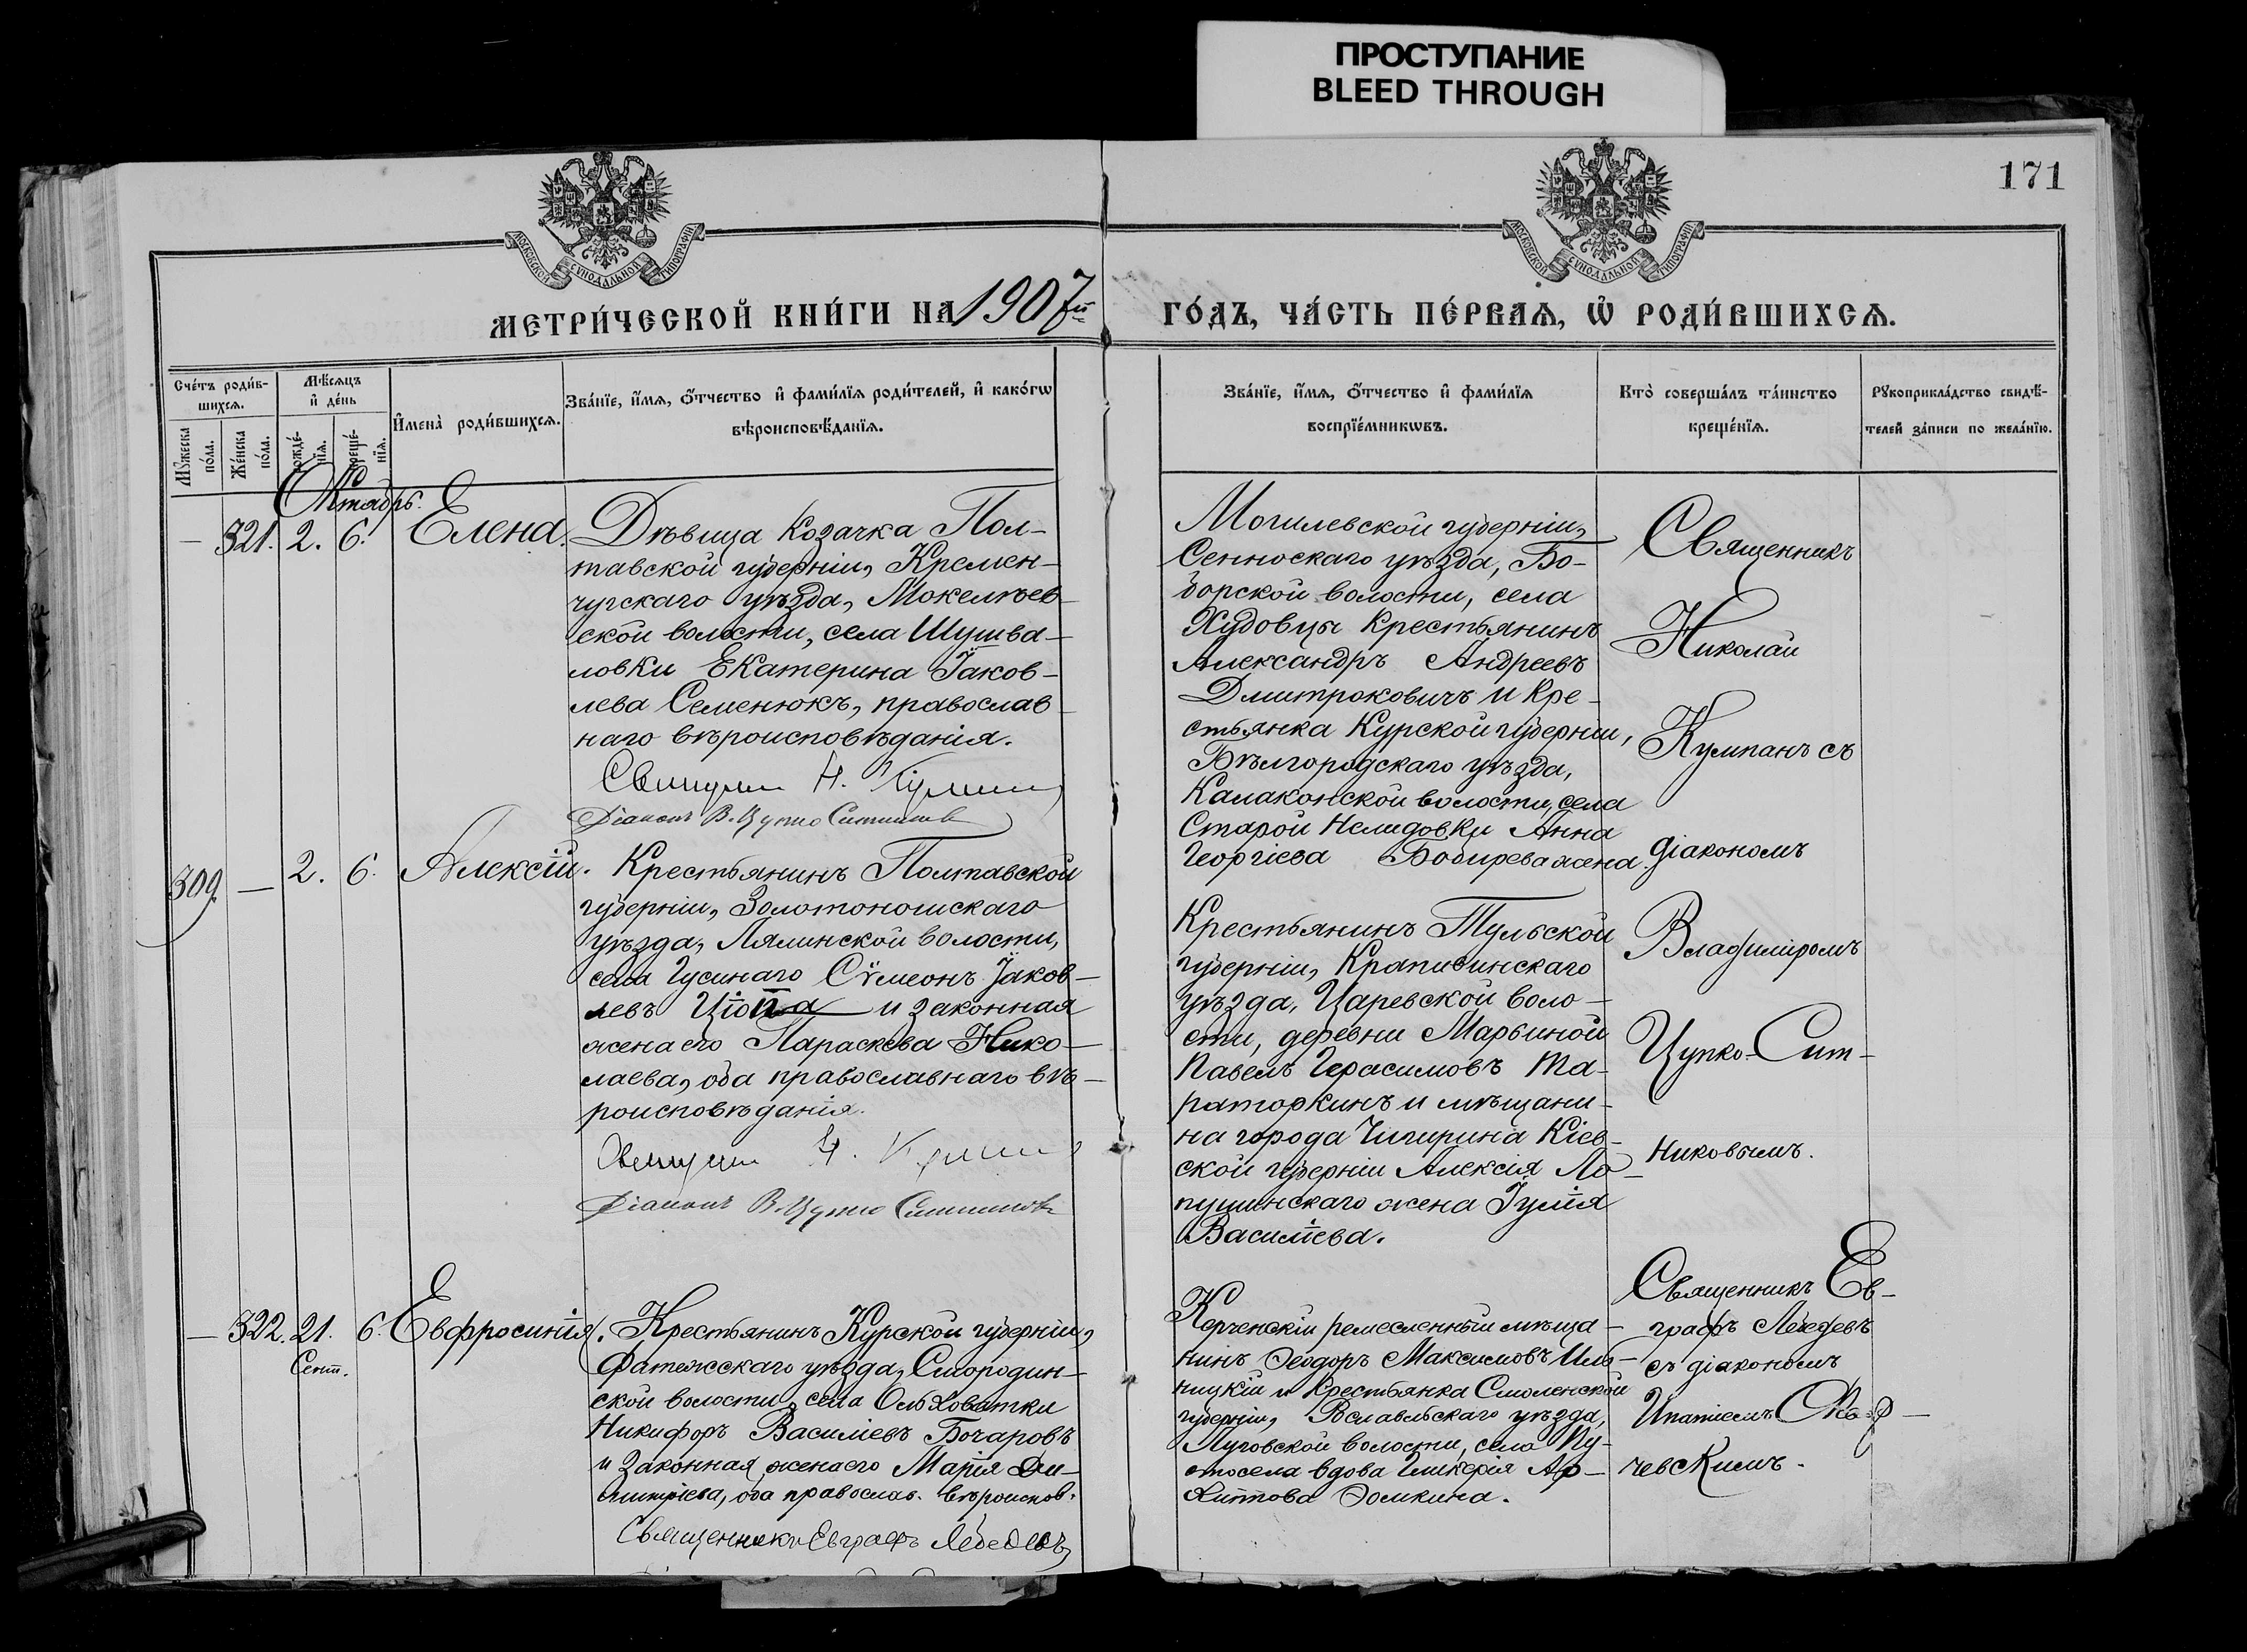 ПРОСТУПАНИЕ
BLEED THROUGH
171
МОСКОВСКОЙ СѴНОДАЛЬНОЙ ТИПОГРАФІИ
МОСКОВСКОЙ СѴНОДАЛЬНОЙ ТИПОГРАФІИ
МЕТРИ́ЧЕСКОЙ КНИ́ГИ НА 1907й
ГО́ДЪ, ЧА́СТЬ ПЕ́РВАѦ, Ѡ҆ РОДИ́ВШИХСѦ.
Сче́тъ роди́в-
шихсѧ.
Мꙋ́жеска по́ла.
Же́нска по́ла.
Мѣ́сѧцъ
и҆ де́нь
рожде́-
нїѧ.
креще́-
нїѧ.
И҆мена̀ роди́вшихсѧ.
Зва́нїе, и҆́мѧ, ѻ҆́тчество и҆ фами́лїѧ роди́телей, и҆ како́гѡ
вѣроисповѣ́данїѧ.
Зва́нїе, и҆́мѧ, ѻ҆́тчество и҆ фами́лїѧ
воспрїе́мникѡвъ.
Кто̀ соверша́лъ та́инство
креще́нїѧ.
Рꙋкоприкла́дство свидѣ́-
телей за́писи по жела́нїю.
Октябрь.
— 321. 2. 6. Елена.
Дѣвица козачка Пол-
тавской губерніи, Кремен-
чугскаго уѣзда, Мокелѣев-
ской волости, села Шушва-
ловки Екатерина Іаков-
лева Семенюкъ, православ-
наго вѣроисповѣданія.
Священникъ Н. Кумпанъ
Діаконъ В. Цупко Ситниковъ
Могилевской губерніи,
Сенноскаго уѣзда, Бо-
борской волости, села
Худовцы крестьянинъ
Александръ Андреевъ
Дмитроковичъ и кре-
стьянка Курской губерніи,
Бѣлгородскаго уѣзда,
Калаконской волости, села
Старой Нелидовки Анна
Георгіева Бобырева жена.
Священникъ
Николай
Кумпанъ съ
діакономъ
Владиміромъ
Цупко-Сит-
никовымъ.
309. — 2. 6. Алексій.
Крестьянинъ Полтавской
губерніи, Золотоношскаго
уѣзда, Лялинской волости,
села Гусинаго Сѵмеонъ Іаков-
левъ Цюпа и законная
жена его Параскева Нико-
лаева, оба православнаго вѣ-
роисповѣданія.
Священникъ Н. Кумпанъ
Діаконъ В. Цупко Ситниковъ
Крестьянинъ Тульской
губерніи, Крапивинскаго
уѣзда, Царевской воло-
сти, деревни Марьиной
Павелъ Герасимовъ Та-
раторкинъ и мѣщани-
на города Чигирина Кіев-
ской губерніи Алексія Ло-
пушинскаго жена Іулія
Василіева.
— 322. 21. 6. Евфросинія.
Сент.
Крестьянинъ Курской губерніи,
Фатежсскаго уѣзда, Смородин-
ской волости, села Ольховатки
Никифоръ Василіевъ Бочаровъ
и законная жена его Марія Ди-
митріева, оба православ. вѣроиспов.
Священникъ Евграфъ Лебедевъ
Керченскій ремесленный мѣща-
нинъ Ѳеодоръ Максимовъ Иль-
ницкій и крестьянка Смоленской
губерніи, Рославльскаго уѣзда,
Луговской волости, села Пу-
стосела вдова Гликерія Ар-
хиппова Ѳомкина.
Священникъ Ев-
графъ Лебедевъ
съ діакономъ
Ипатіемъ
чевскимъ.